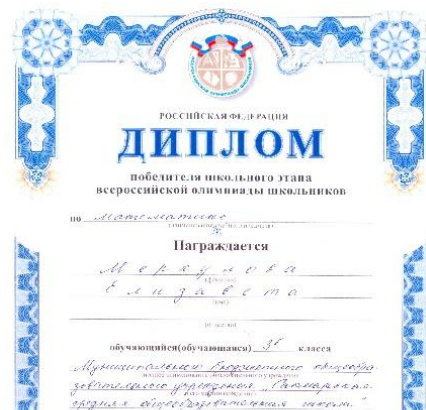 РОССИЙСКАЯ ФЕДЕРАЦИЯ
ДИПЛОМ
победителя школьного этапа
всероссийской олимпиады школьников
по Математике
Награждается
Меркулова
(фамилия)
Елизавета
(имя)
обучающийся(обучающаяся) класса
Муниципального бюджетного общеобра-
зовательного учреждения
средняя общеобразовательная школа"